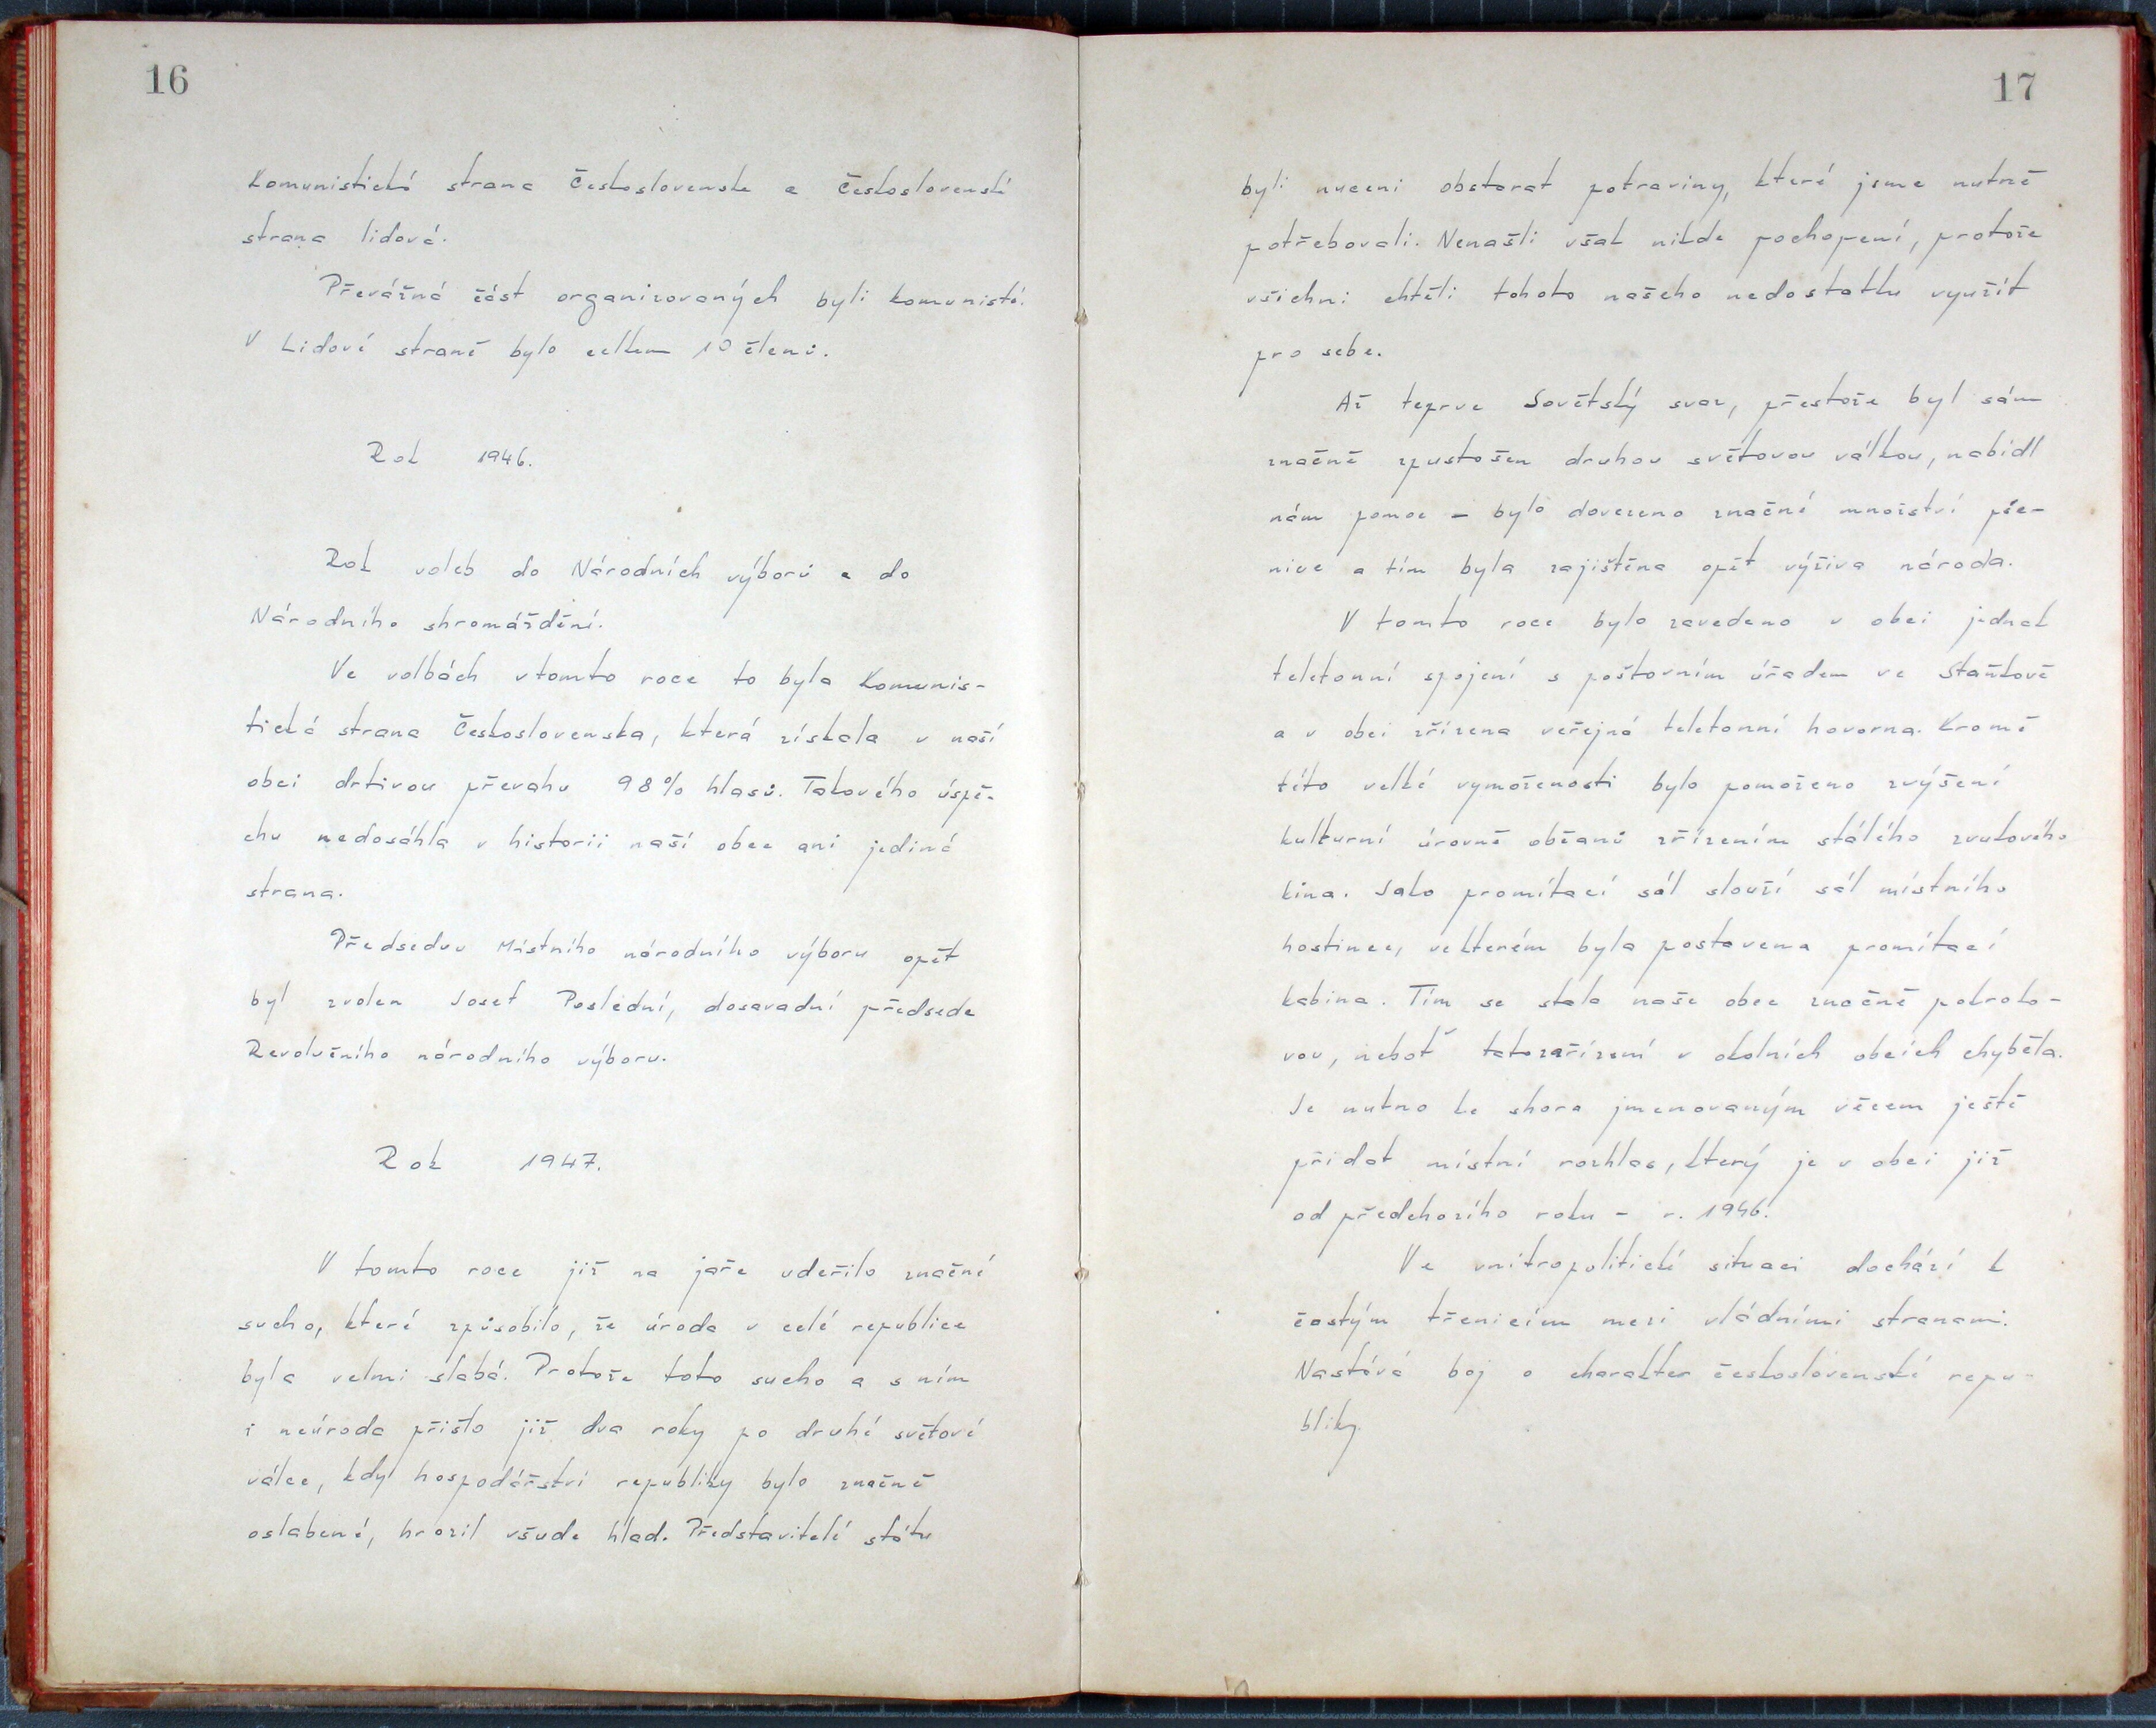 16
Komunistická strana Československa a Československá
strana lidová.
Převážná část organizovaných byli komunisté.
V Lidové straně bylo celkem 10 členů.
Rok 1946.
Rok voleb do Národních výborů a do
Národního shromáždění.
Ve volbách vtomto roce to byla Komunis-
tická strana Československa, která získala v naší
obci drtivou převahu 98% hlasů. Takového úspě-
chu nedosáhla v historii naší obce ani jediná
strana.
Předsedou Místního národního výboru opět
byl zvolen Josef Poslední, dosavadní předseda
Revolučního národního výboru.
Rok 1947.
V tomto roce již na jaře udeřilo značné
sucho, které způsobilo, že úroda v celé republice
byla velmi slabá. Protože toto sucho a s ním
i neúroda přišlo již dva roky po druhé světové
válce, kdy hospodářství republiky bylo značně
oslabené, hrozil všude hlad. Představitelé státu
17
byli nuceni obstarat potraviny, které jsme nutně
potřebovali. Nenašli však nikde pochopení, protože
všichni chtěli tohoto našeho nedostatku využít
pro sebe.
Až teprve Sovětský svaz, přestože byl sám
značně zpustošen druhou světovou válkou, nabídl
nám pomoc - bylo dovezeno značné množství pše-
nice a tím byla zajištěna opět výživa národa.
V tomto roce bylo zavedeno v obci jednak
telefonní spojení s poštovním úřadem ve Staňkově
a v obci zřízena veřejná telefonní hovorna. Kromě
této velké vymoženosti bylo pomoženo zvýšení
kulturní úrovně občanů zřízením stálého zvukového
kina. Jako promítací sál slouží sál místního
hostince, vekterém byla postavena promítací
kabina. Tím se stala naše obec značně pokroko-
vou, neboť tatozařízení v okolních obcích chyběla.
Je nutno ke shora jmenovaným věcem ještě
přidat místní rozhlas, který je v obci již
od předchozího roku - r. 1946.
Ve vnitropolitické situaci dochází k
častým třenicím mezi vládními stranami.
Nastává boj o charakter československé repu-
bliky.